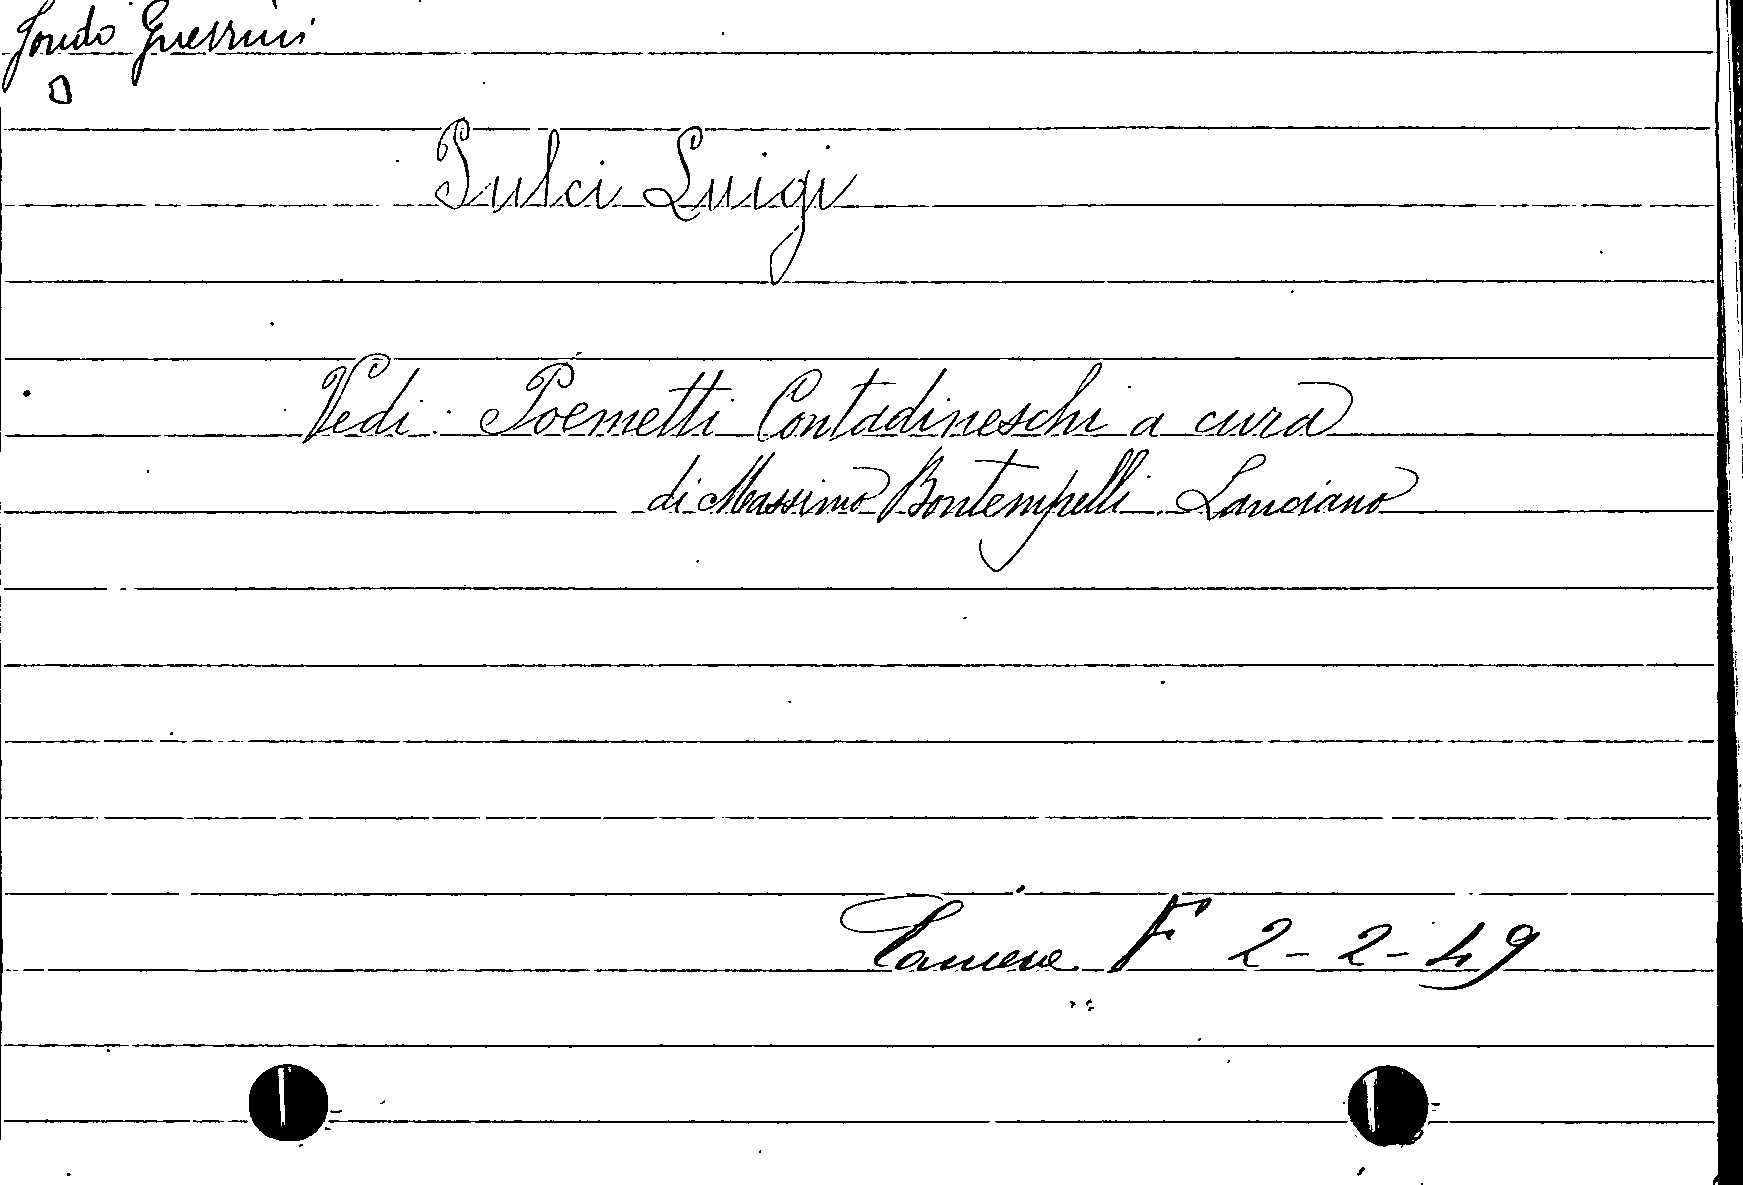 Fondo Guerrini
Pulci Luigi
Vedi: Poemetti Contadineschi a cura
di Massimo Bontempelli. Lanciano
Camera F 2-2-49